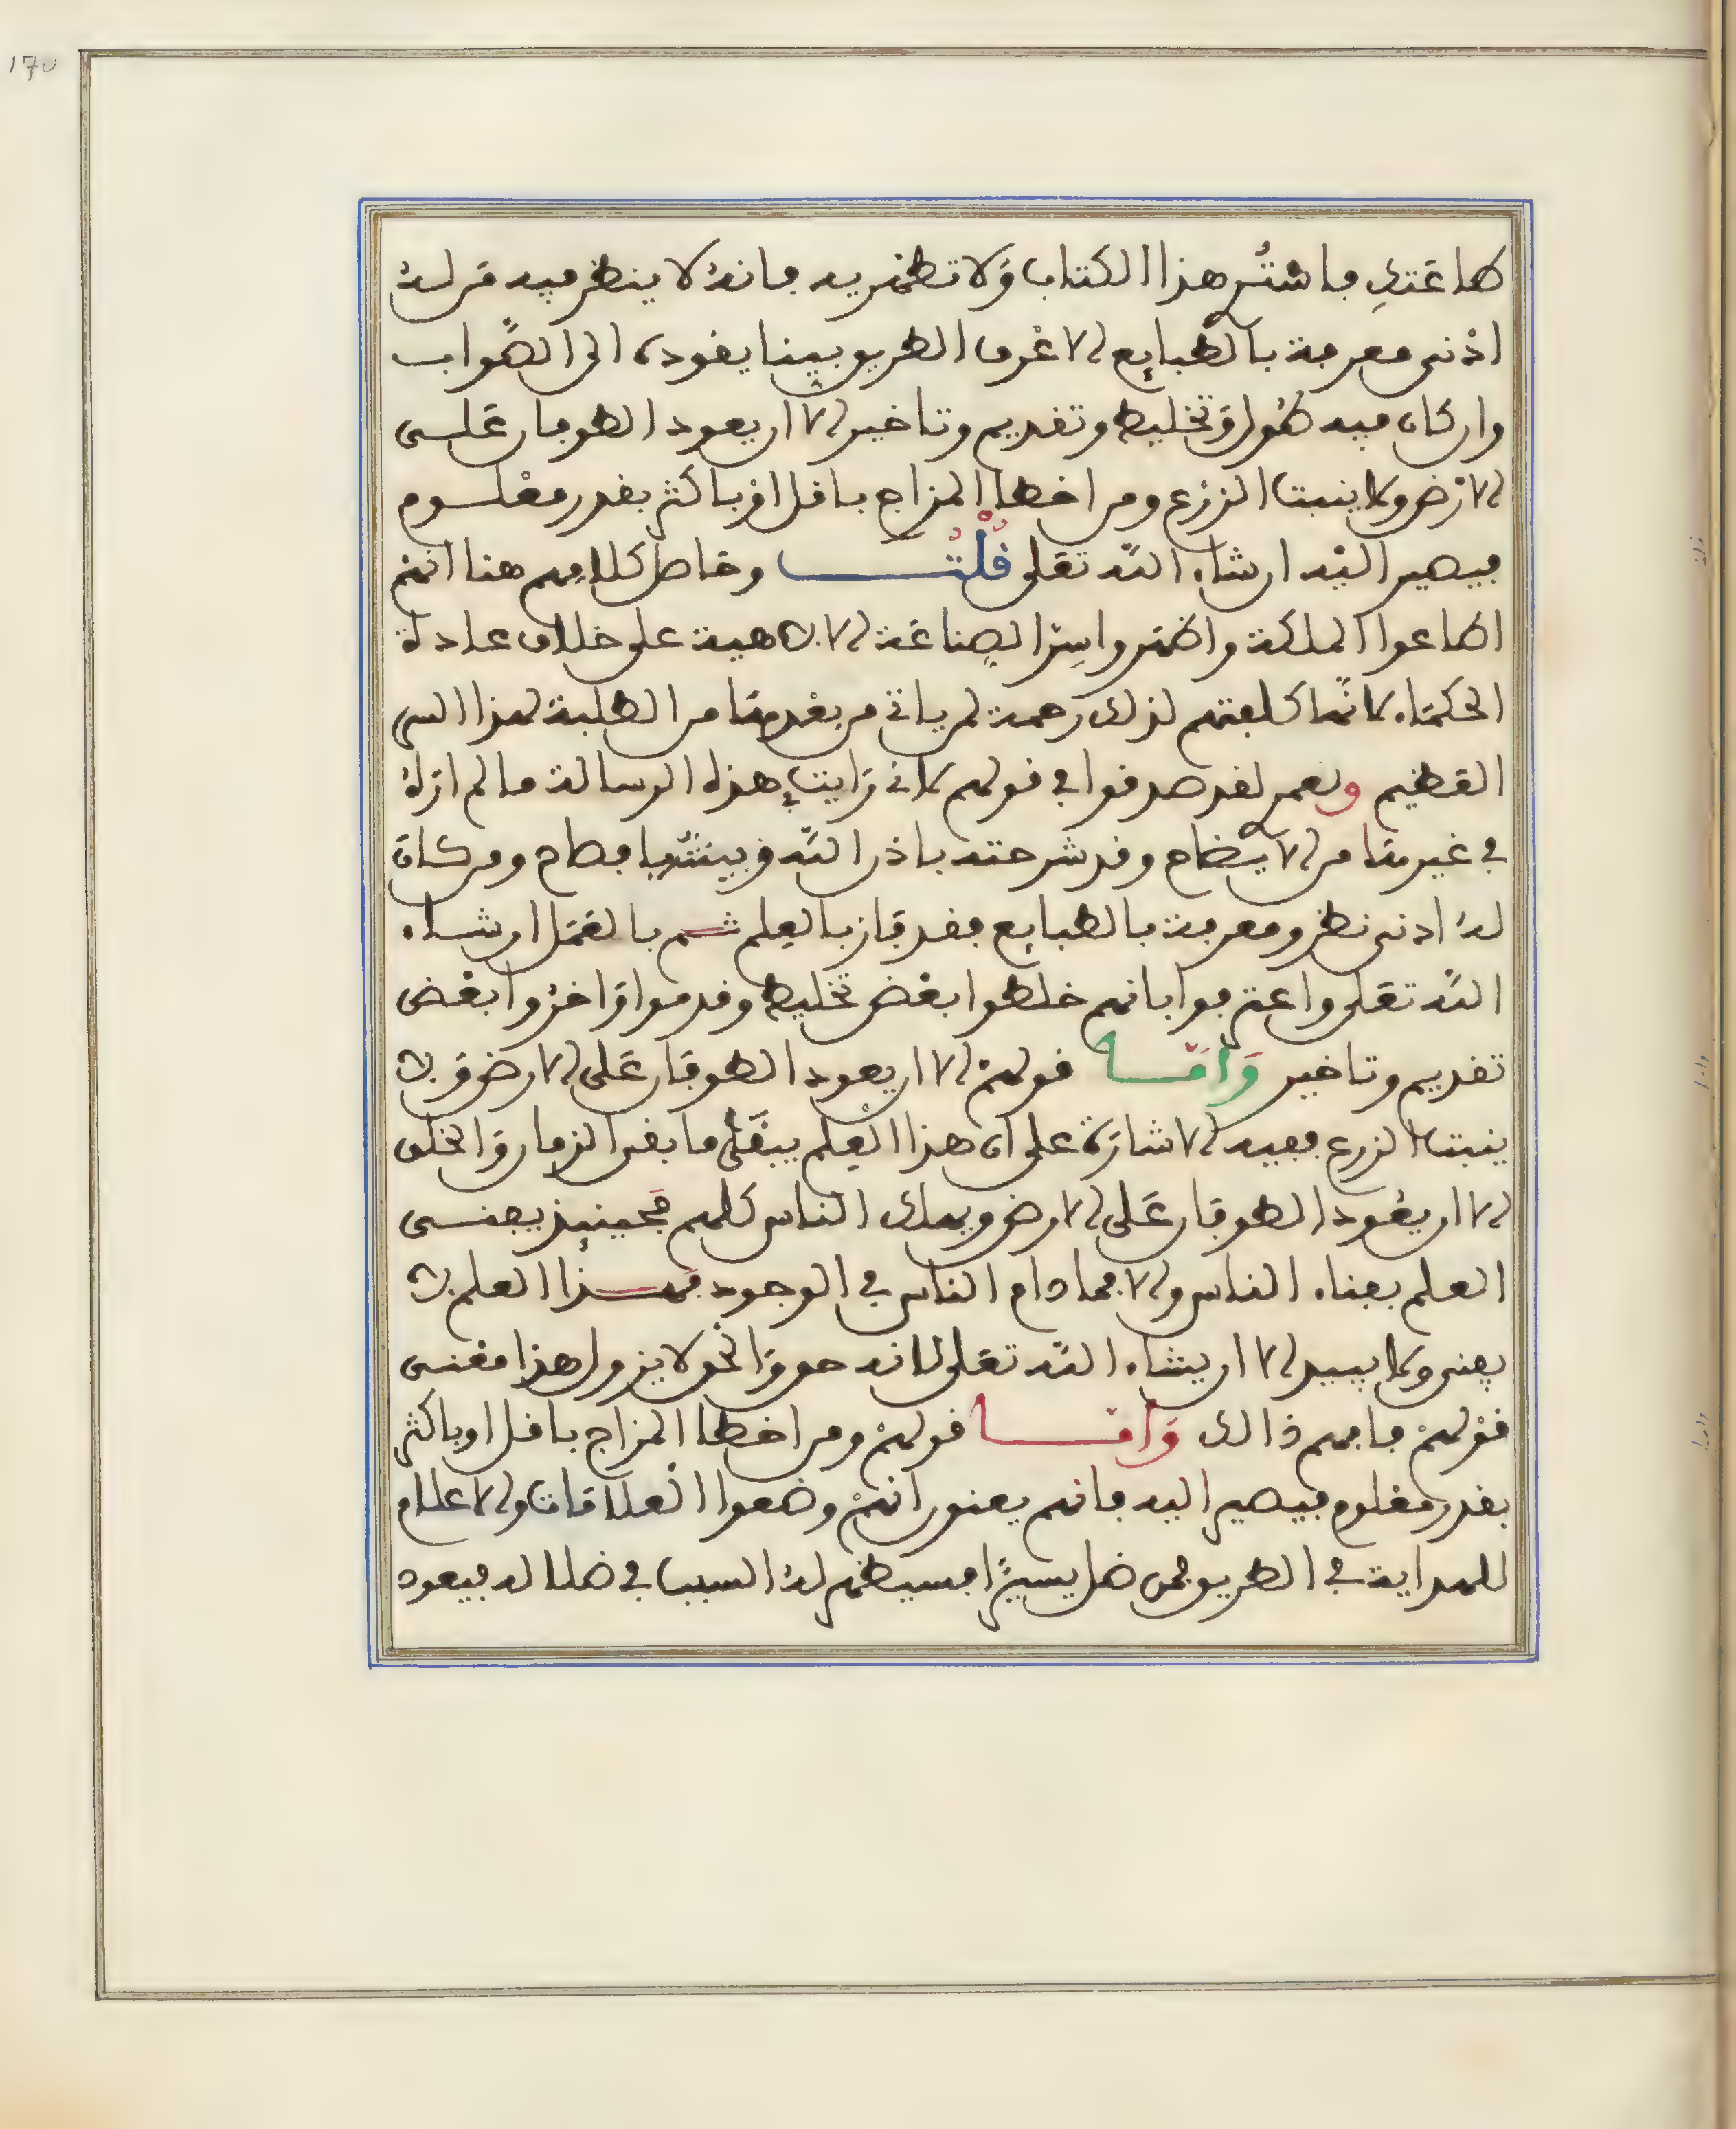 طاعتك فاستر هذا الكتاب ولا تظهر به فانه لا ينظر فيه من له
ادنى معرفة بالطبايع الا عرف الطريق بينا يقوده الى الصواب
وان كان فيه طول وتخليط وتقديم وتاخير الا ان يعود الطوفان على
الارض ولا ينبت الزرع ومن اخطا المزاج باقل او باكثر بقدر معلوم
فيصير اليه ان شاء الله تعلى قلت وحاصل كلامهم هنا انهم
اطاعوا الملكة واظهروا سر الصناعة الالاهية على خلاف عادة
الحكماء لانها كلفتهم لذلك رحمة لم ياتي من بعدها من الطلبة لهذا السر
العظيم ولعمر لقد صدقوا في قولهم لاني رايت في هذه الرسالة ما لم اراه
في غيرها من الايضاح وقد شرحته باذن الله وبينته بافصاح ومن كان
له ادنى نظر ومعرفة بالطبايع فقد فاز بالعلم ثم بالعمل ان شاء
الله تعلى واعترفوا بانهم خلطوا بعض تخليط وقدموا واخروا بعض
تقديم وتاخير واما قولهم الا ان يعود الطوفان على الارض ولا
ينبت الزرع ففيه الاشارة على ان هذا العلم يبقى ما بقى الزمان والخلق
الا ان يعود الطوفان على الارض ويهلك الناس كلهم فحينيذ يفنى
العلم بفناء الناس والا فما دام الناس في الوجود فهذا العلم لا
يفنى ولا يبيد الا ان يشاء الله تعلى لانه حق والحق لا يزول هذا معنى
قولهم فافهم ذالك واما قولهم ومن اخطا المزاج باقل او باكثر
بقدر معلوم فيصير اليه فانهم يعنون انهم وضعوا العلامات والاعلام
للهداية في الطريق فمن ضل يسيرا فسيظهر له السبب في ضلاله فيعود